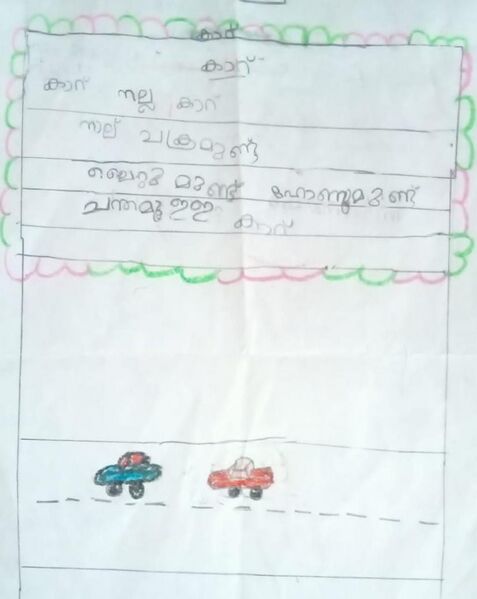 കാറ്
കാറ്
കാറ് നല്ല കാറ്
നാല് ചക്രമുണ്ട്
ലൈറ്റുമുണ്ട് ഹോണുമുണ്ട്
ചന്തമുള്ള കാറ്